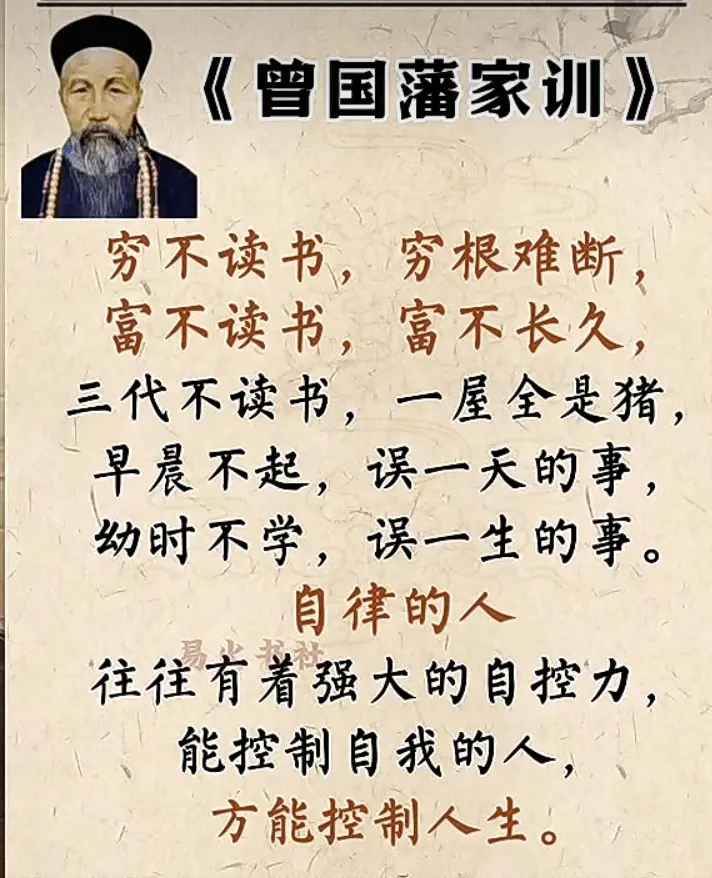 《曾国藩家训》
穷不读书，穷根难断，
富不读书，富不长久，
三代不读书，一屋全是猪，
早晨不起，误一天的事，
幼时不学，误一生的事。
自律的人
易火书社
往往有着强大的自控力，
能控制自我的人，
方能控制人生。